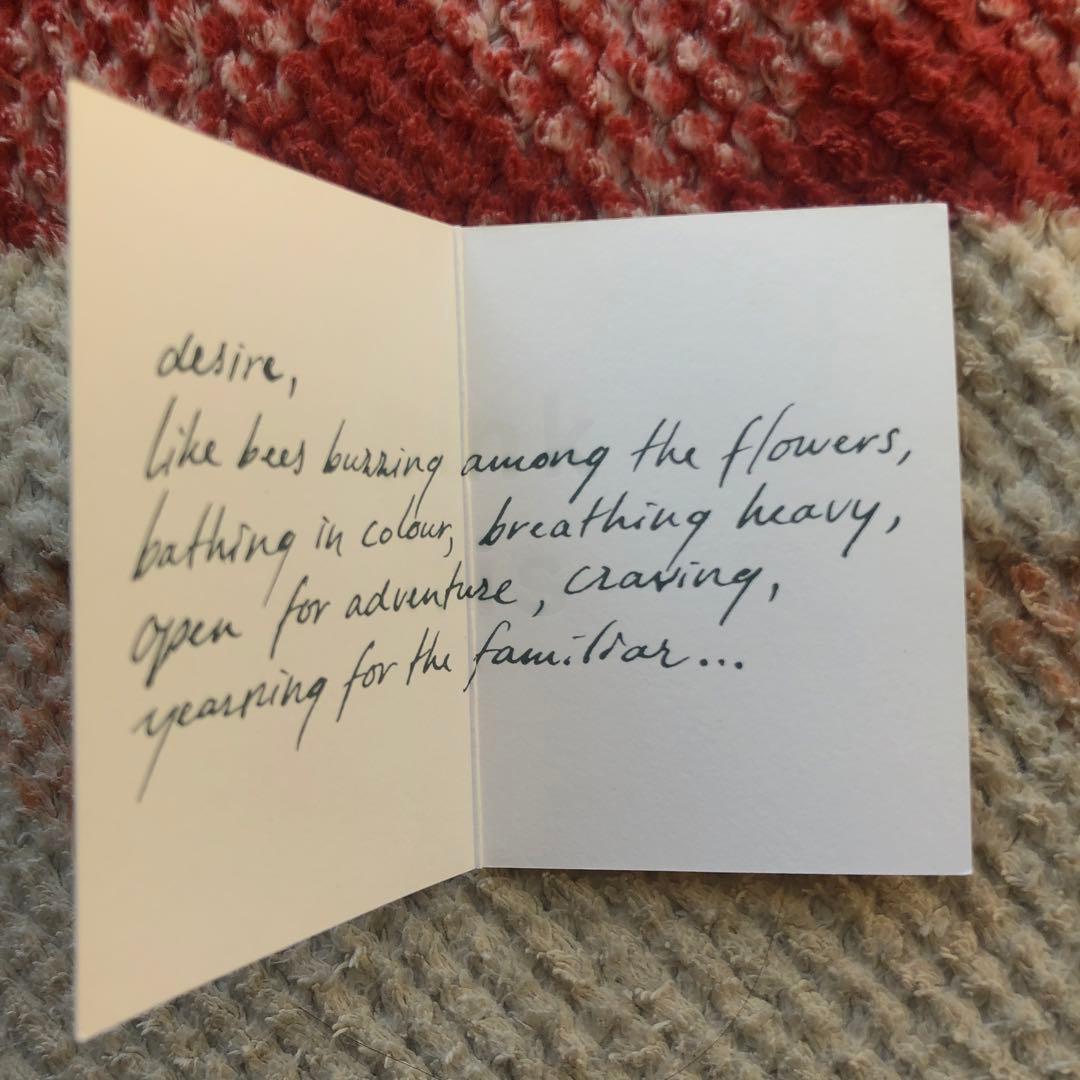 desire,
like bees buzzing among the flowers,
bathing in colour, breathing heavy,
open for adventure, craving,
yearning for the familiar...